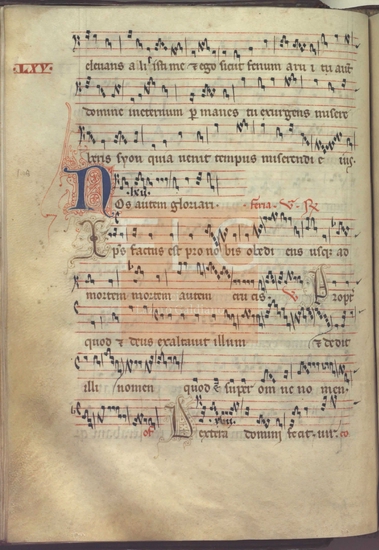 elevans allisisti me et ego sicut fenum aru i tu aut
LXV.
domine ineternum p manes tu exurgens misere
beris syon quia uenit tempus miserendi e ius
Nos autem gloriari. feria. v. R
Ips factus est pro no bis obedi ens usq; ad
mortem mortem autem cru cis. V Propt
quod et deus exaltauit illum et dedit
illi nomen quod est super om ne no men.
Dextera domini fecit uir.